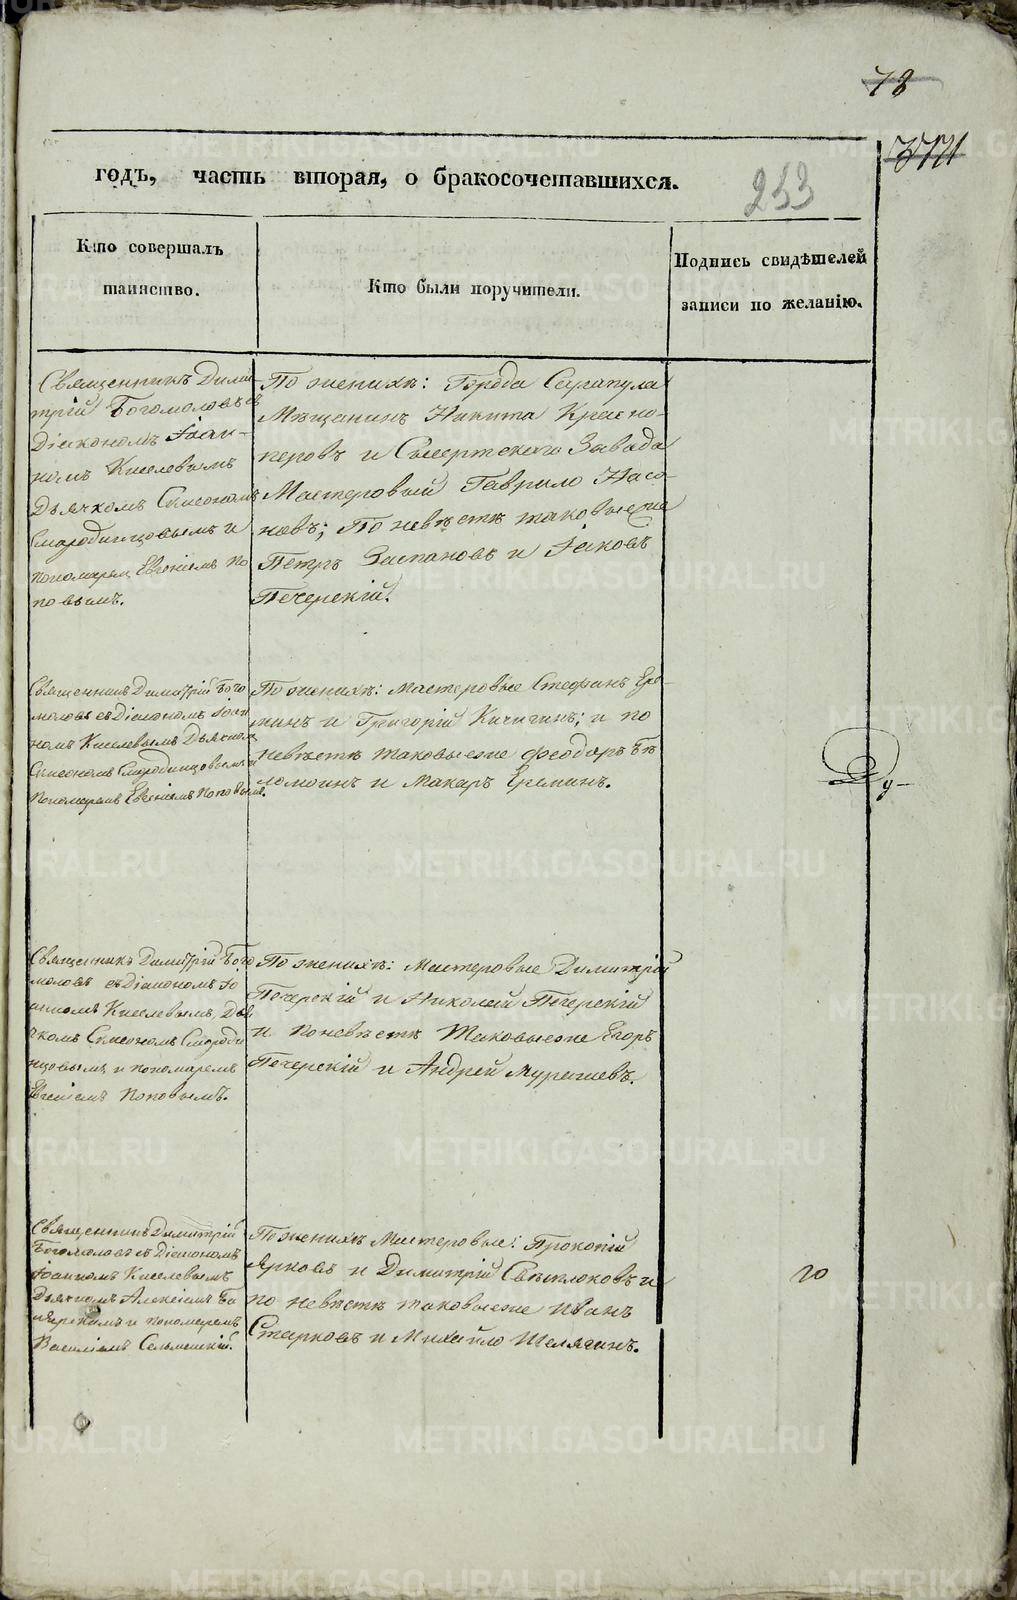 78
годъ, часть вторая, о бракосочетавшихся.
253
Кто совершалъ
таинство.
Кто были поручители.
Подпись свидѣтелей
записи по желанію.
Священникъ Дими-
трій Богомоловъ съ
Діакономъ Іоан-
номъ Киселевымъ
Дьячкомъ Симеономъ
Смородинцовымъ и
пономаремъ Евгеніемъ По
повымъ.
По женихѣ: Города Сарапула
Мѣщанинъ Никита Красно-
перовъ и Завода
Мастеровый Гаврило Насо-
новъ; По невѣстѣ таковые же
Петръ и Іаковъ
Печерскій.
Священникъ Димитрій Бого
моловъ съ Діакономъ Іоан
номъ Киселевымъ Дьячком
Симеономъ Смородинцовымъ и
Пономаремъ Евгеніемъ Поповымъ.
По женихѣ: Мастеровые Стефанъ Ере-
минъ и Григорій Кичигинъ; и по
невѣстѣ таковые же Феодоръ Бѣ
и Макаръ Ереминъ.
Священникъ Димитрій Бого
моловъ съ Діакономъ Іо
анномъ Киселевымъ, Дья
чкомъ Симеономъ Смороди
нцовымъ и пономаремъ
Евгеніемъ Поповымъ.
По женихѣ: Мастеровые Димитрій
Печерскій и Николай Печерскій
и по невѣстѣ Таковые же Егоръ
Печерскій и Андрей
Священникъ Димитрій
Богомоловъ съ Діакономъ
Іоанномъ Киселевымъ
Дьячкомъ Алексіемъ
и пономаремъ
Василіемъ
По женихѣ Мастеровые: Прокопій
Ярковъ и Димитрій Свѣтлоковъ и
по невѣстѣ таковые же Иванъ
Старковъ и Михайло Шелягинъ.
20
METRIKI.GASO-URAL.RU